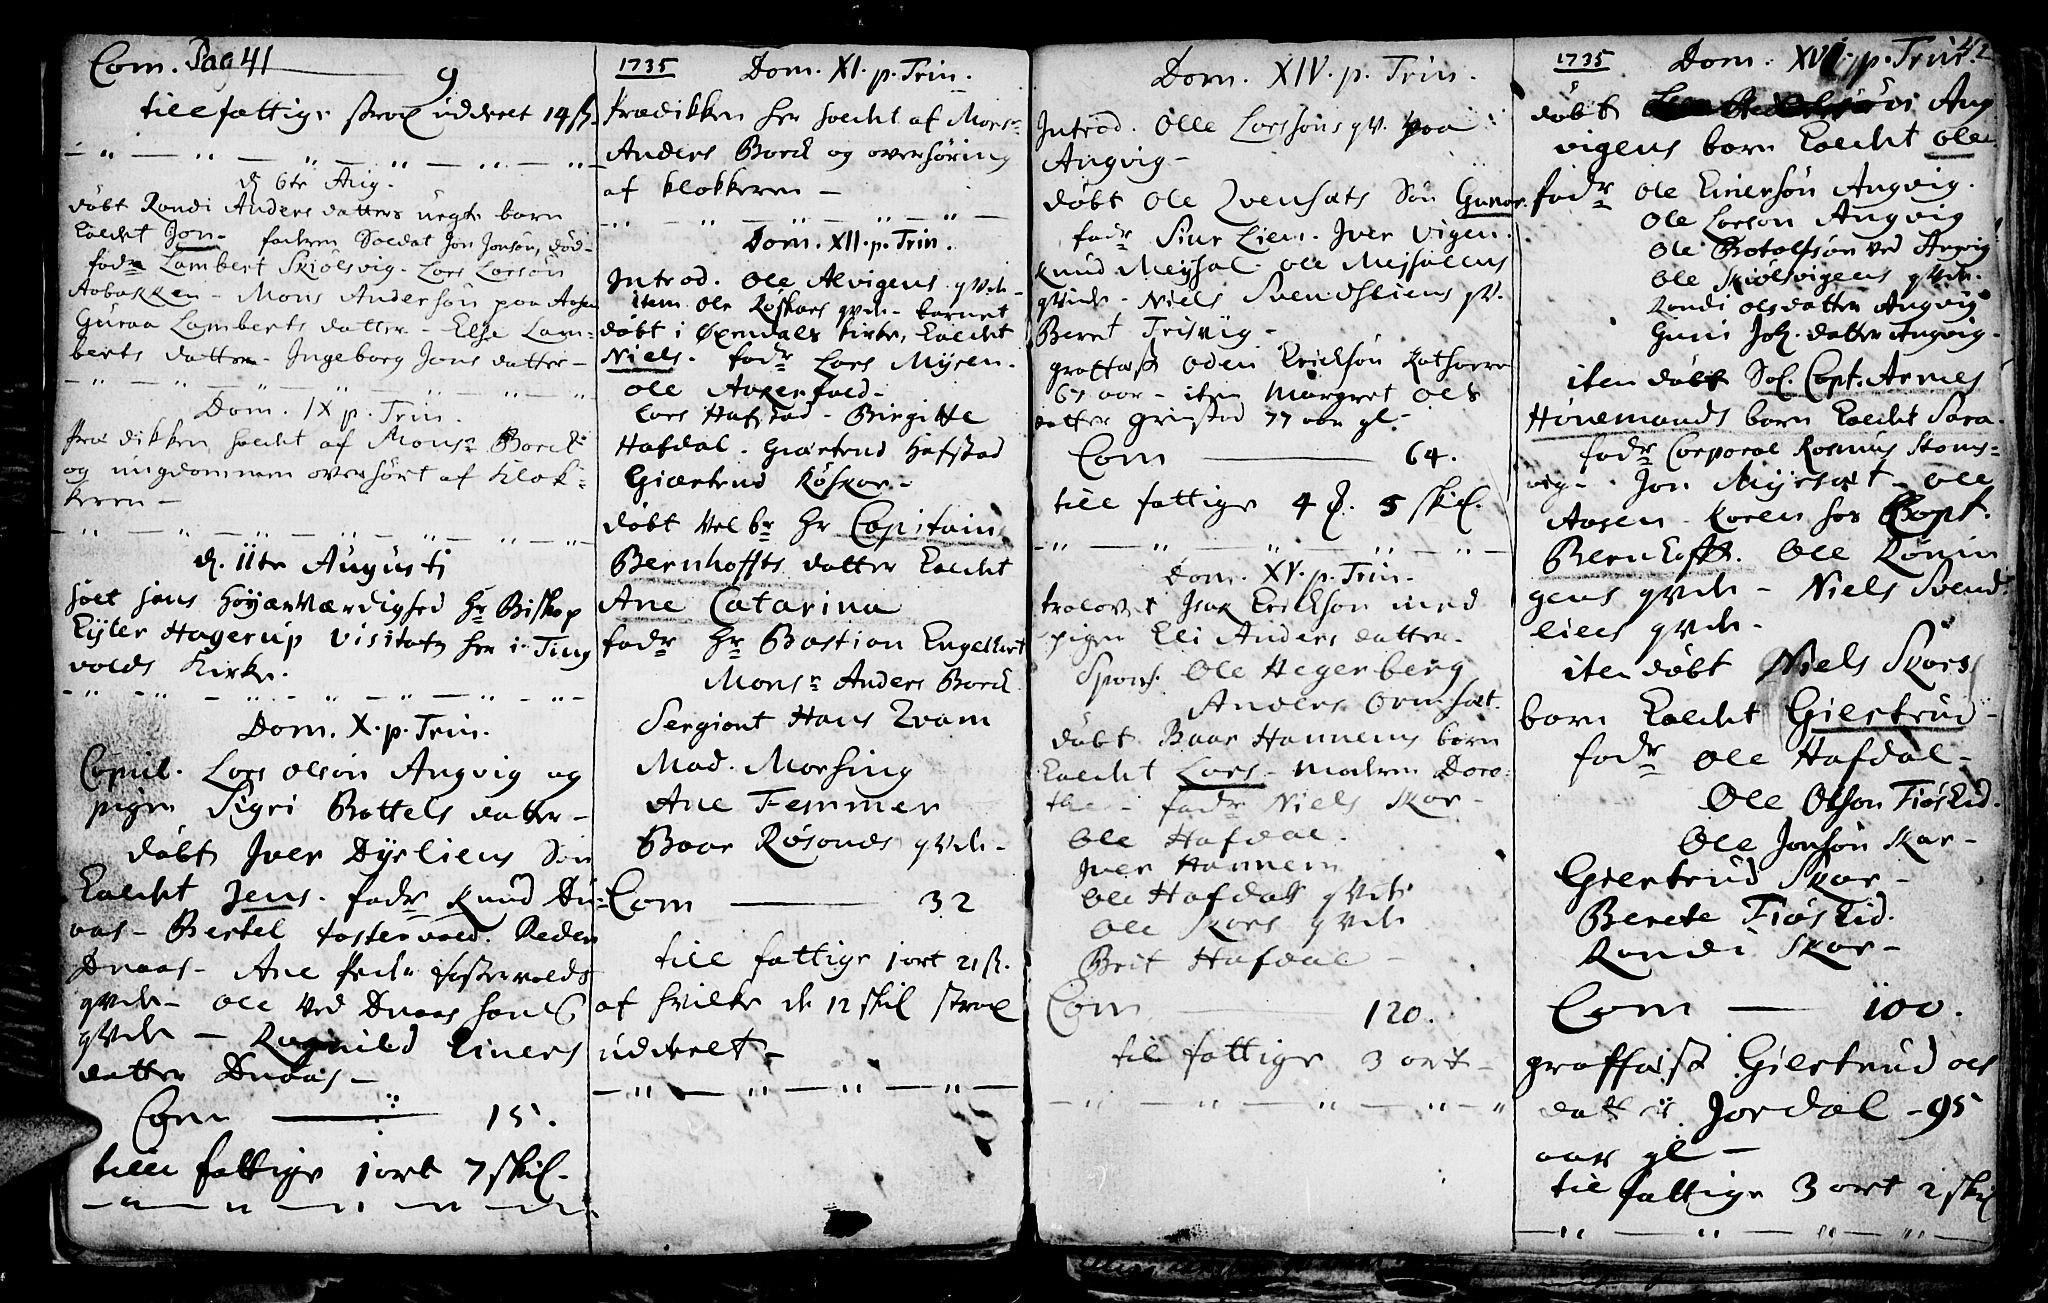 Com. Pag 41
9
till fattige strax uddeelt 14 ß.
d 6te Aug.
døbt Randi Anders datters uegte barn
kaldet Jon. fadren Soldat Jon Jonsøn, død-
fadr Lambert Skiølsvig. Lars Larsøn
Aabakken - Mons Andersøn paa Aasen
Guraa Lamberts datter - Else Lam-
berts datter - Ingeborg Jons datter -
Dom. IX p. Trin.
Prædikken holdt af Monsr Borck
og ungdommen overhørt af Klok-
keren -
d. 11te Augusti
holt hans Høyærværdighed Hr Biskop
Eyler Hagerup Visitatz her i Ting
volds Kirke.
Dom. X. p. Trin.
Copul. Lars Olsøn Angvig og
pigen Sigri Bottels datter -
døbt Iver Dyrliens Søn
kaldet Jens. fadr Knud Du-
aas - Bertel fostervold. Peder
Dnaas - Ane Peder fostervolds
qvde - Ole ved Dnaas hans
qvde - Ragnild Einers
datter Dnaas -
Com 15.
till fattige 1 ort 7 skil -
1735 Dom. XI. p. Trin.
Prædikken her holdt af Monsr
Anders Borck og overhøring
af klokkeren -
Dom. XII. p. Trin.
Introd. Ole Alvigens qvde -
item Ole Røskars qvde - barnet
døbt i Øxendals kirke, kaldet
Niels. fadr Lars Myren.
Ole Aakerfald -
Lars Hafstad - Birgitte
Hafdal. Giertrud Hafstad
Giertrud Røskar -
døbt Velbr Hr Capitain
Bernhoffts datter kaldet
Ane Catarina
fadr Hr Bastian Engelbert
Monsr Anders Borck
Sergiant Hans Tram
Mad. Morsing
Ane Femmer
Baar Røsands qvde -
Com 32
till fattige 1 ort 21 ß.
af hvilke de 12 skil strax
uddeelt -
Dom. XIV. p. Trin.
Introd. Olle Larsøns qv. paa
Angvig -
døbt Ole Tvensæts Søn Gunar.
fadr Siur Lien. Iver Vigen.
Knud Meysal. Ole Meisalens
qvinde - Niels Svendsliens qv.
Beret Trisvig -
graffæst Oden Erichsøn Rathoven
67 aar - item Margret Ols
datter Grinstad 77 aar gl.
Com 64.
till fattige 4 ß. 5 skil.
Dom. XV. p. Trin.
trolovet Isac Erickson med
pigen Eli Anders datter -
Spons. Ole Hegerberg
Anders Ormsæt.
døbt Baar Hannems barn
kaldet Lars - modren Doro-
the - fadr Niels Skar -
Ole Hafdal.
Iver Hannem
Ole Hafdals qvde
Ole Skars qvde
Brit Hafdal -
Com 120.
til fattige 3 ort -
1735 Dom. XVI. p. Trin. 42
døbt Ang
vigens barn kaldet Ole
fadr Ole Einersøn Angvig.
Ole Larson Angvig
Ole Botolfsøn ved Angvig
Ole Skiølsvigens qvde.
Randi Olsdatter Angvig
Guni Joh. datter Angvig.
item døbt Sol. Capt. Arnes
Hønemands barn kaldet Sara.
fadr Corporal Rasmus Stans-
vig - Jon Myrsæt - Ole
Aasen - Karen hos Capt.
Bernhofft. Ole Rønin
gens qvde - Niels Svend-
liens qvde -
item døbt Niels Skars
barn kaldet Giertrud -
fadr Ole Hafdal -
Ole Olson Fiøslid.
Ole Jonsøn Skar -
Giertrud Skar -
Berete Fiøslid.
Randi Skar -
Com 100.
graffæst Giertrud Ols
datter Jordal - 95
aar gl -
till fattige 3 ort 2 skil